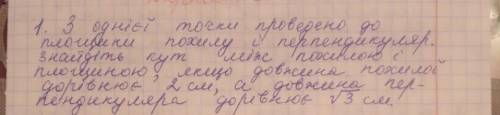 1. З однієї точки проведено до
площини похилу і перпендикуляр.
Знайдіть кут між похилою і
площиною, якщо довжина похилої
дорівнює 2 см, а довжина пер-
пендикуляра дорівнює √3 см.